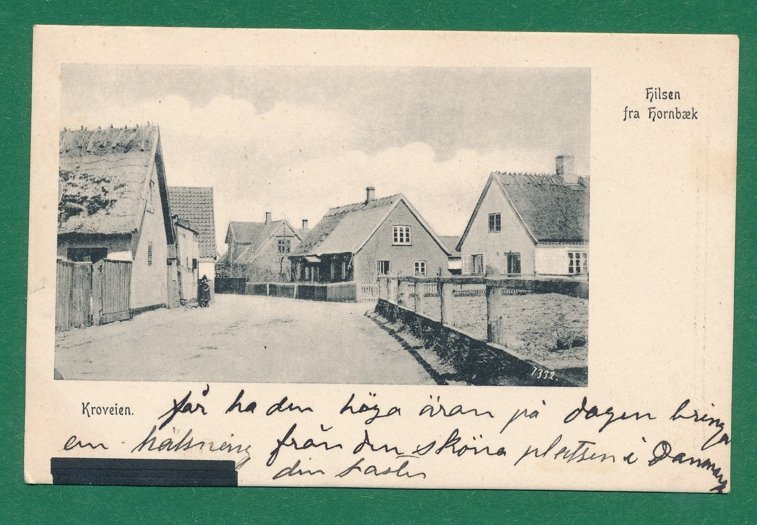 Hilsen
fra Hornbæk
7332.
Kroveien.
får ha den höga äran på dagen bringa
en hälsning från den sköna platsen i Danmark
din